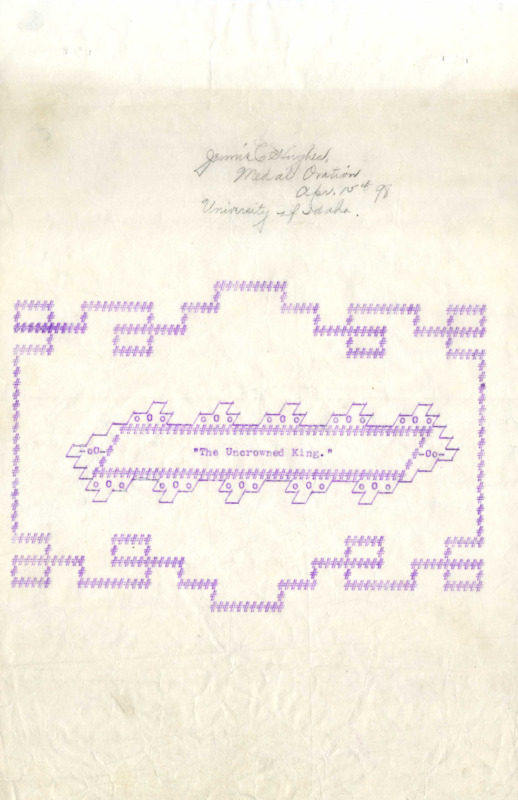 Jennie E Hughes,
Medal Oration
Apr. 98
University of Idaho.
"The Uncrowned King."